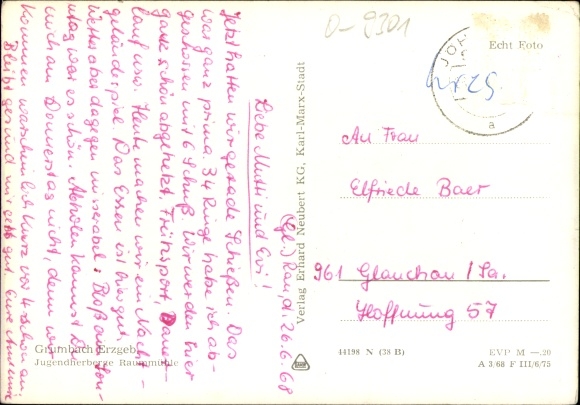 D-9301
Echt Foto
(Gl.) Rau, d. 26.6.68
Liebe Mutti und Evi!
Jetzt hatten wir gerade Schießen. Das
war ganz prima. 34 Ringe habe ich ab-
geschossen mit 6 Schuß. Wir werden hier
ganz schön abgehetzt. Frühsport, Dauer-
lauf usw. Heute machen wir ein Nacht-
geländespiel. Das Essen ist hier gut.
Wetter aber dagegen miserabel. Bloß am Sonn-
tag war es schön. Abholen kannst Du
mich am Donnerstag nicht, denn wir
kommen wahrscheinlich kurz vor 4 schon an.
Bleibt gesund mir gehts gut. Eure
Grumbach Erzgeb.
Jugendherberge Raummühle
Verlag Erhard Neubert KG, Karl-Marx-Stadt
An Frau
Elfriede Baer
961 Glauchau / Sa.
Hoffnung 57
44198 N (38 B)
EVP M —.20
A 3/68 F III/6/75